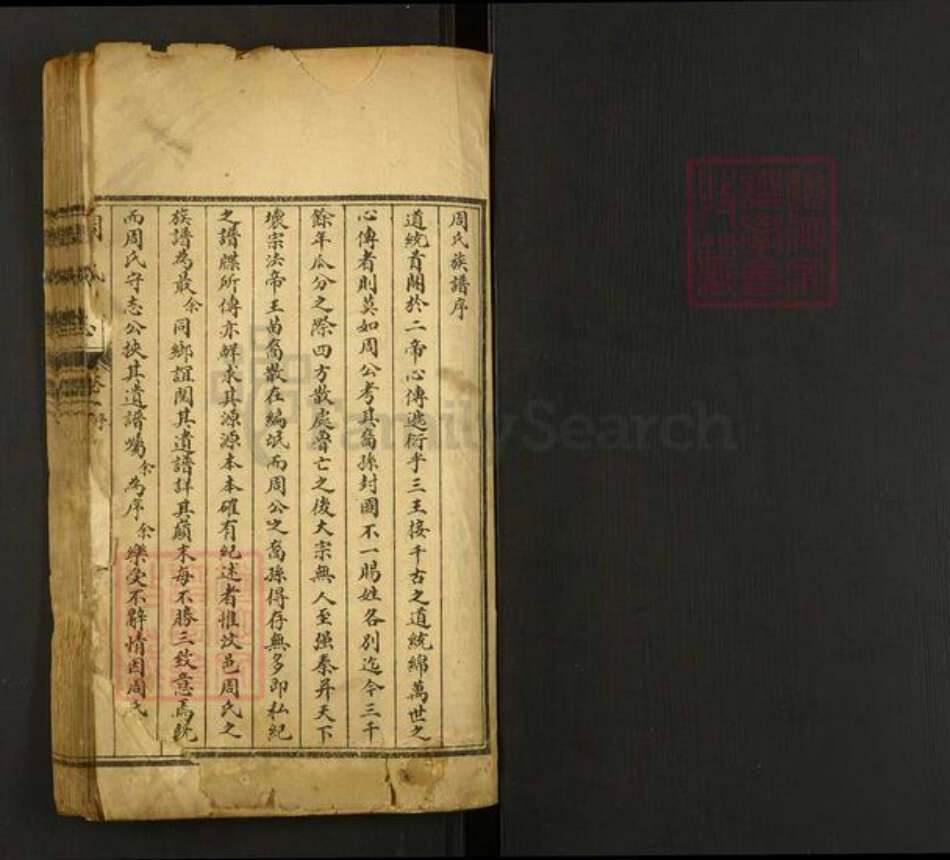 周氏族譜序
道統首開於二帝心傳遞衍乎三王接千古之道統綿萬世之
心傳者則莫如周公考其裔孫封國不一賜姓各別迄今三千
餘年瓜分之際四方散處魯亡之後大宗無人至强秦并天下
壞宗法帝王苗裔散在編氓而周公之裔孫得存無多即私紀
之譜牒所傳亦鮮求其源源本本確有紀述者惟汶邑周氏之
族譜為最余同鄉誼閱其遺譜詳其顛末每不勝三致意焉既
而周氏守志公挾其遺譜囑余為序余樂受不辭情因周氏
周氏
卷一序
FamilySearch